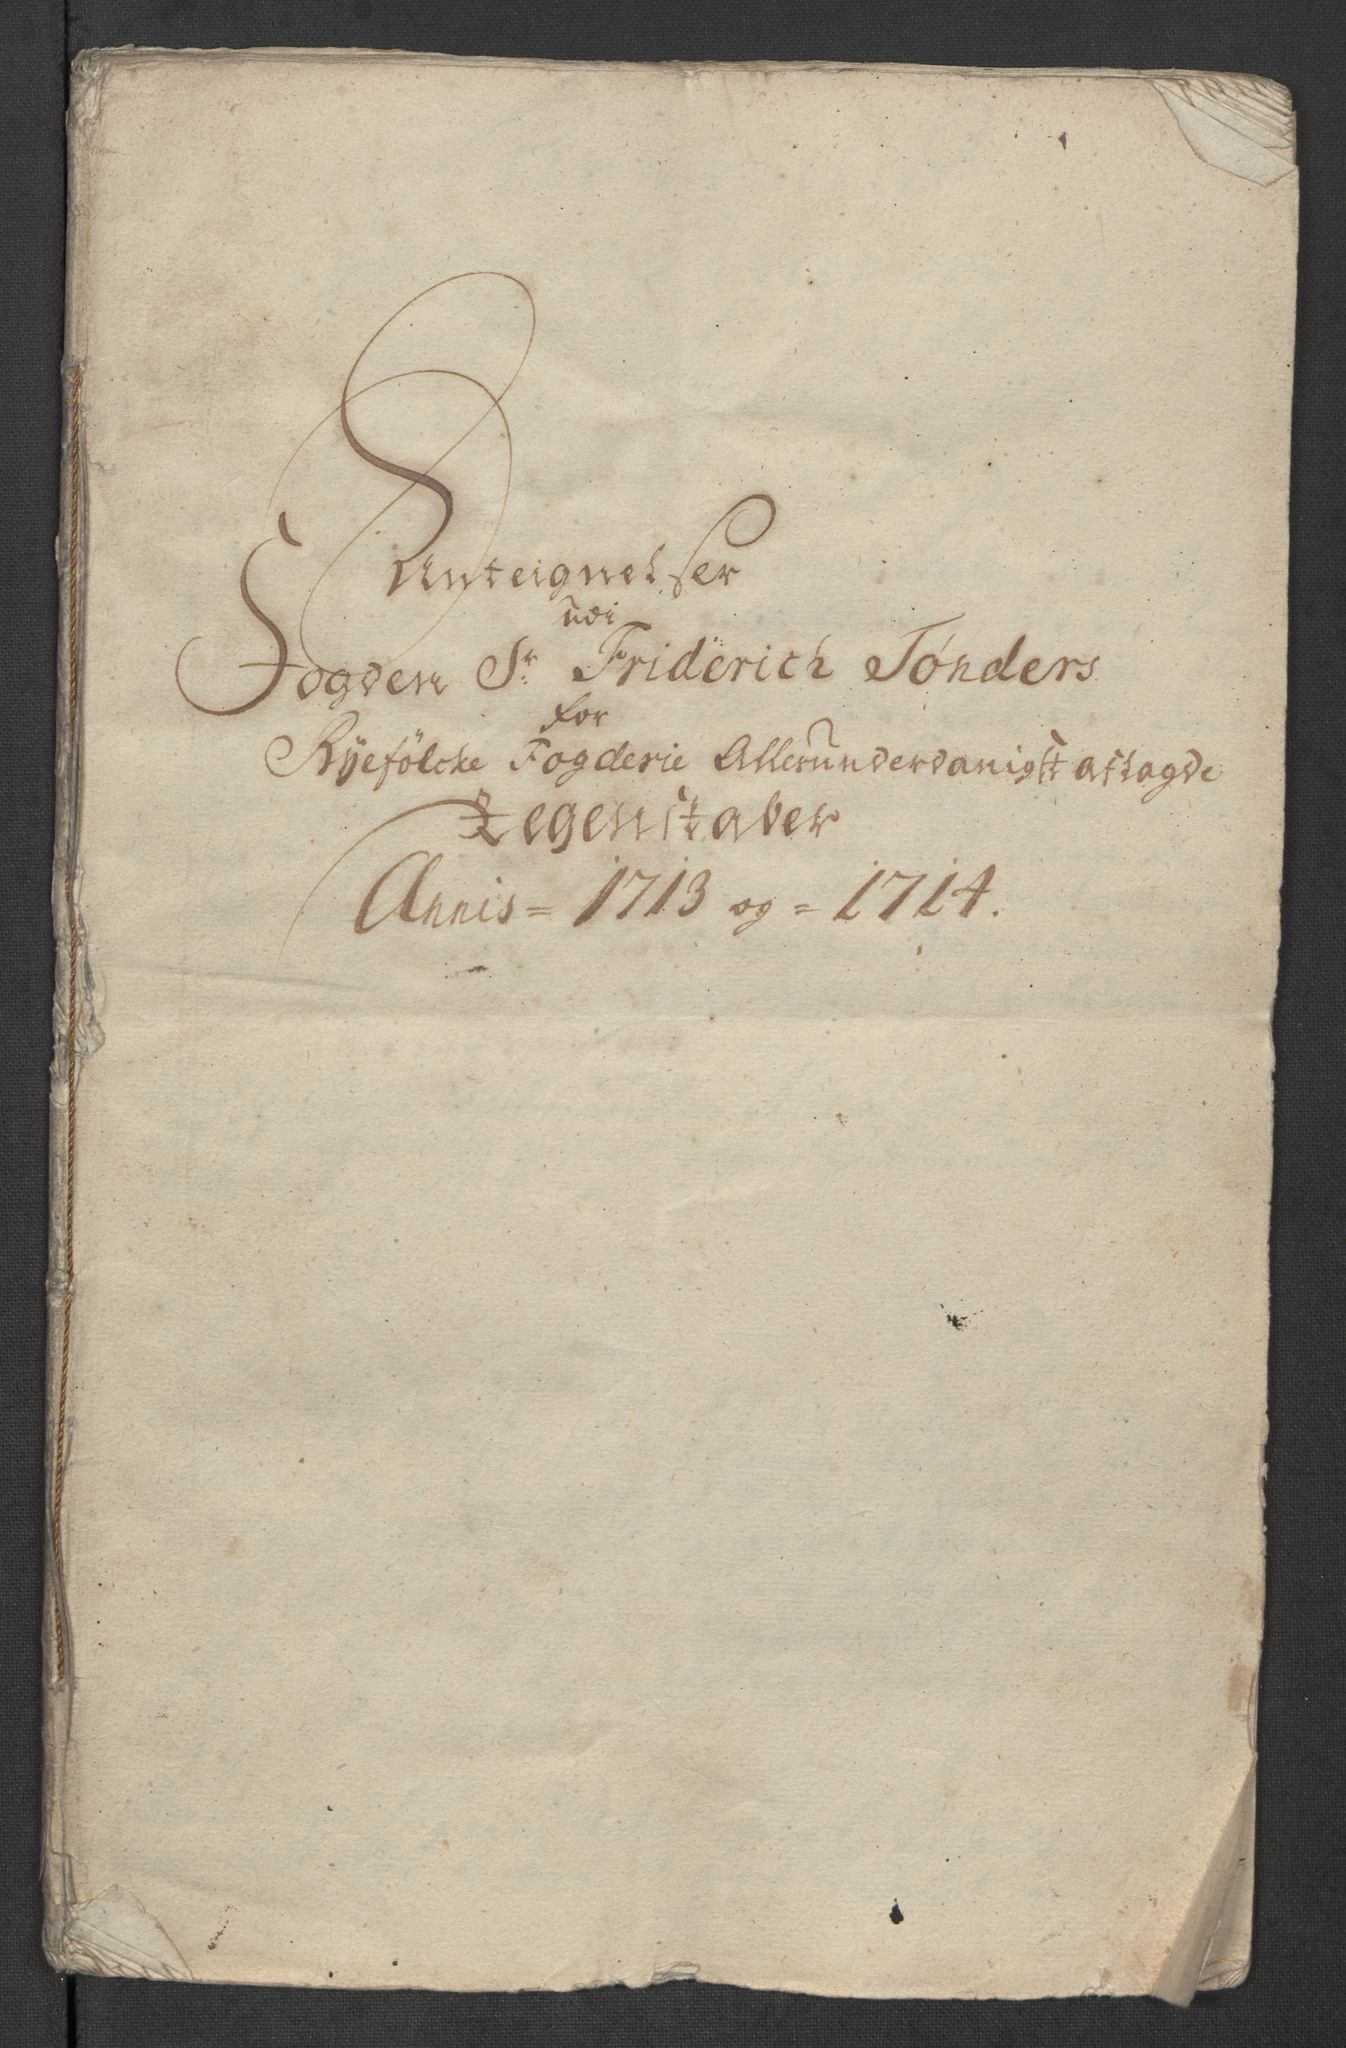 Anteignelser
udi
Fogden Sr. Friderich Tønders
for
Ryefølcke Fogderie Allerunderdanigst aflagde
Regenskaber
Annis = 1713 og = 1714.